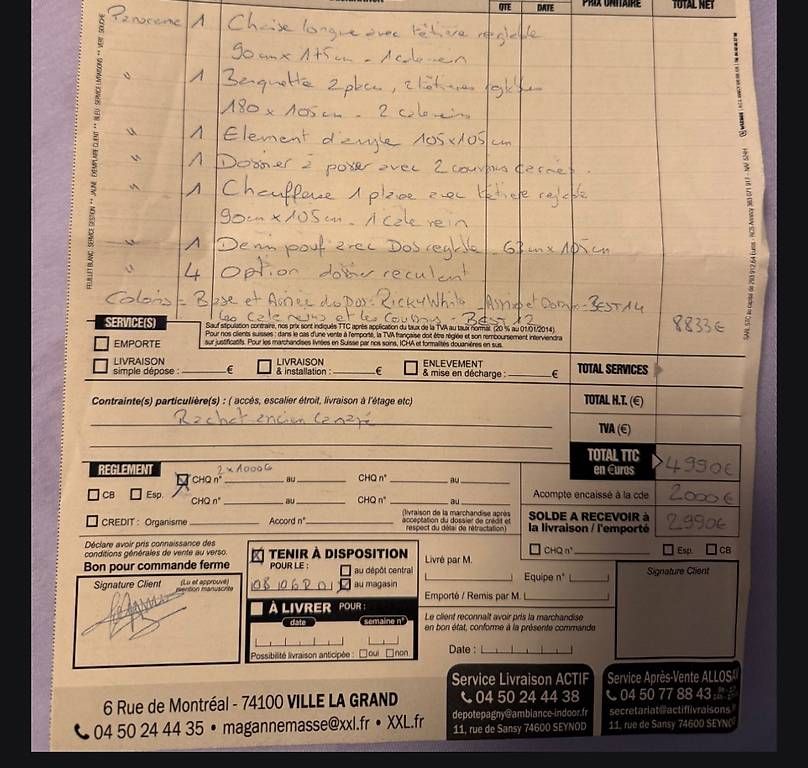 QTE DATE PRIX UNITAIRE TOTAL NET
Panorama 1 Chaise longue avec têtière réglable
90cm x 175cm - 1 cale rein
" 1 Banquette 2 places, 2 têtières réglables
180 x 105cm - 2 cale reins
" 1 Element d'angle 105x105cm
" 1 Dossier à poser avec 2 coussins
" 1 Chauffeuse 1 place avec têtière réglable
90cm x 105cm - 1 cale rein
" 1 Demi pouf avec Dos réglable - 63cm x 105cm
" 4 Option dossier reculant
Coloris = Base et Arrière du Dos: RICKY White BEST 14
les cale reins et les coussins - BEST 12
8833€
FEUILLET BLANC : SERVICE GESTION ** JAUNE : EXEMPLAIRE CLIENT ** BLEU : SERVICE LIVRAISONS ** VERT : SOUCHE
SERVICE(S)
Sauf stipulation contraire, nos prix sont indiqués TTC après application du taux de la TVA au taux normal (20 % au 01/01/2014).
Pour nos clients suisses : dans le cas d'une vente à l'emporté, la TVA française doit être réglée et son remboursement interviendra
sur justificatifs. Pour les marchandises livrées en Suisse par nos soins, ICHA et formalités douanières en sus.
EMPORTE
LIVRAISON
simple dépose : € LIVRAISON
& installation : € ENLEVEMENT
& mise en décharge : €
TOTAL SERVICES
Contrainte(s) particulière(s) : ( accès, escalier étroit, livraison à l'étage etc)
Rachat ancien canapé
TOTAL H.T. (€)
TVA (€)
TOTAL TTC
en €uros 4990€
Acompte encaissé à la cde 2000€
SOLDE A RECEVOIR à
la livraison / l'emporté 2990€
CHQ n° Esp. CB
REGLEMENT
2 x 1000€
CHQ n° au CHQ n° au
CB Esp. CHQ n° au CHQ n° au
CREDIT : Organisme Accord n°
(livraison de la marchandise après
acceptation du dossier de crédit et
respect du délai de rétractation)
Déclare avoir pris connaissance des
conditions générales de vente au verso.
Bon pour commande ferme
Signature Client (Lu et approuvé)
mention manuscrite
TENIR À DISPOSITION
POUR LE :
au dépôt central
au magasin
À LIVRER POUR :
date semaine n°
Possibilité livraison anticipée : oui non
Livré par M.
Equipe n°
Emporté / Remis par M.
Le client reconnaît avoir pris la marchandise
en bon état, conforme à la présente commande
Date :
Signature Client
6 Rue de Montréal - 74100 VILLE LA GRAND
04 50 24 44 35 • magannemasse@xxl.fr • XXL.fr
Service Livraison ACTIF
04 50 24 44 38
depotepagny@ambiance-indoor.fr
11, rue de Sansy 74600 SEYNOD
Service Après-Vente ALLOSA
04 50 77 88 43
secretariat@actiflivraisons
11, rue de Sansy 74600 SEYNO